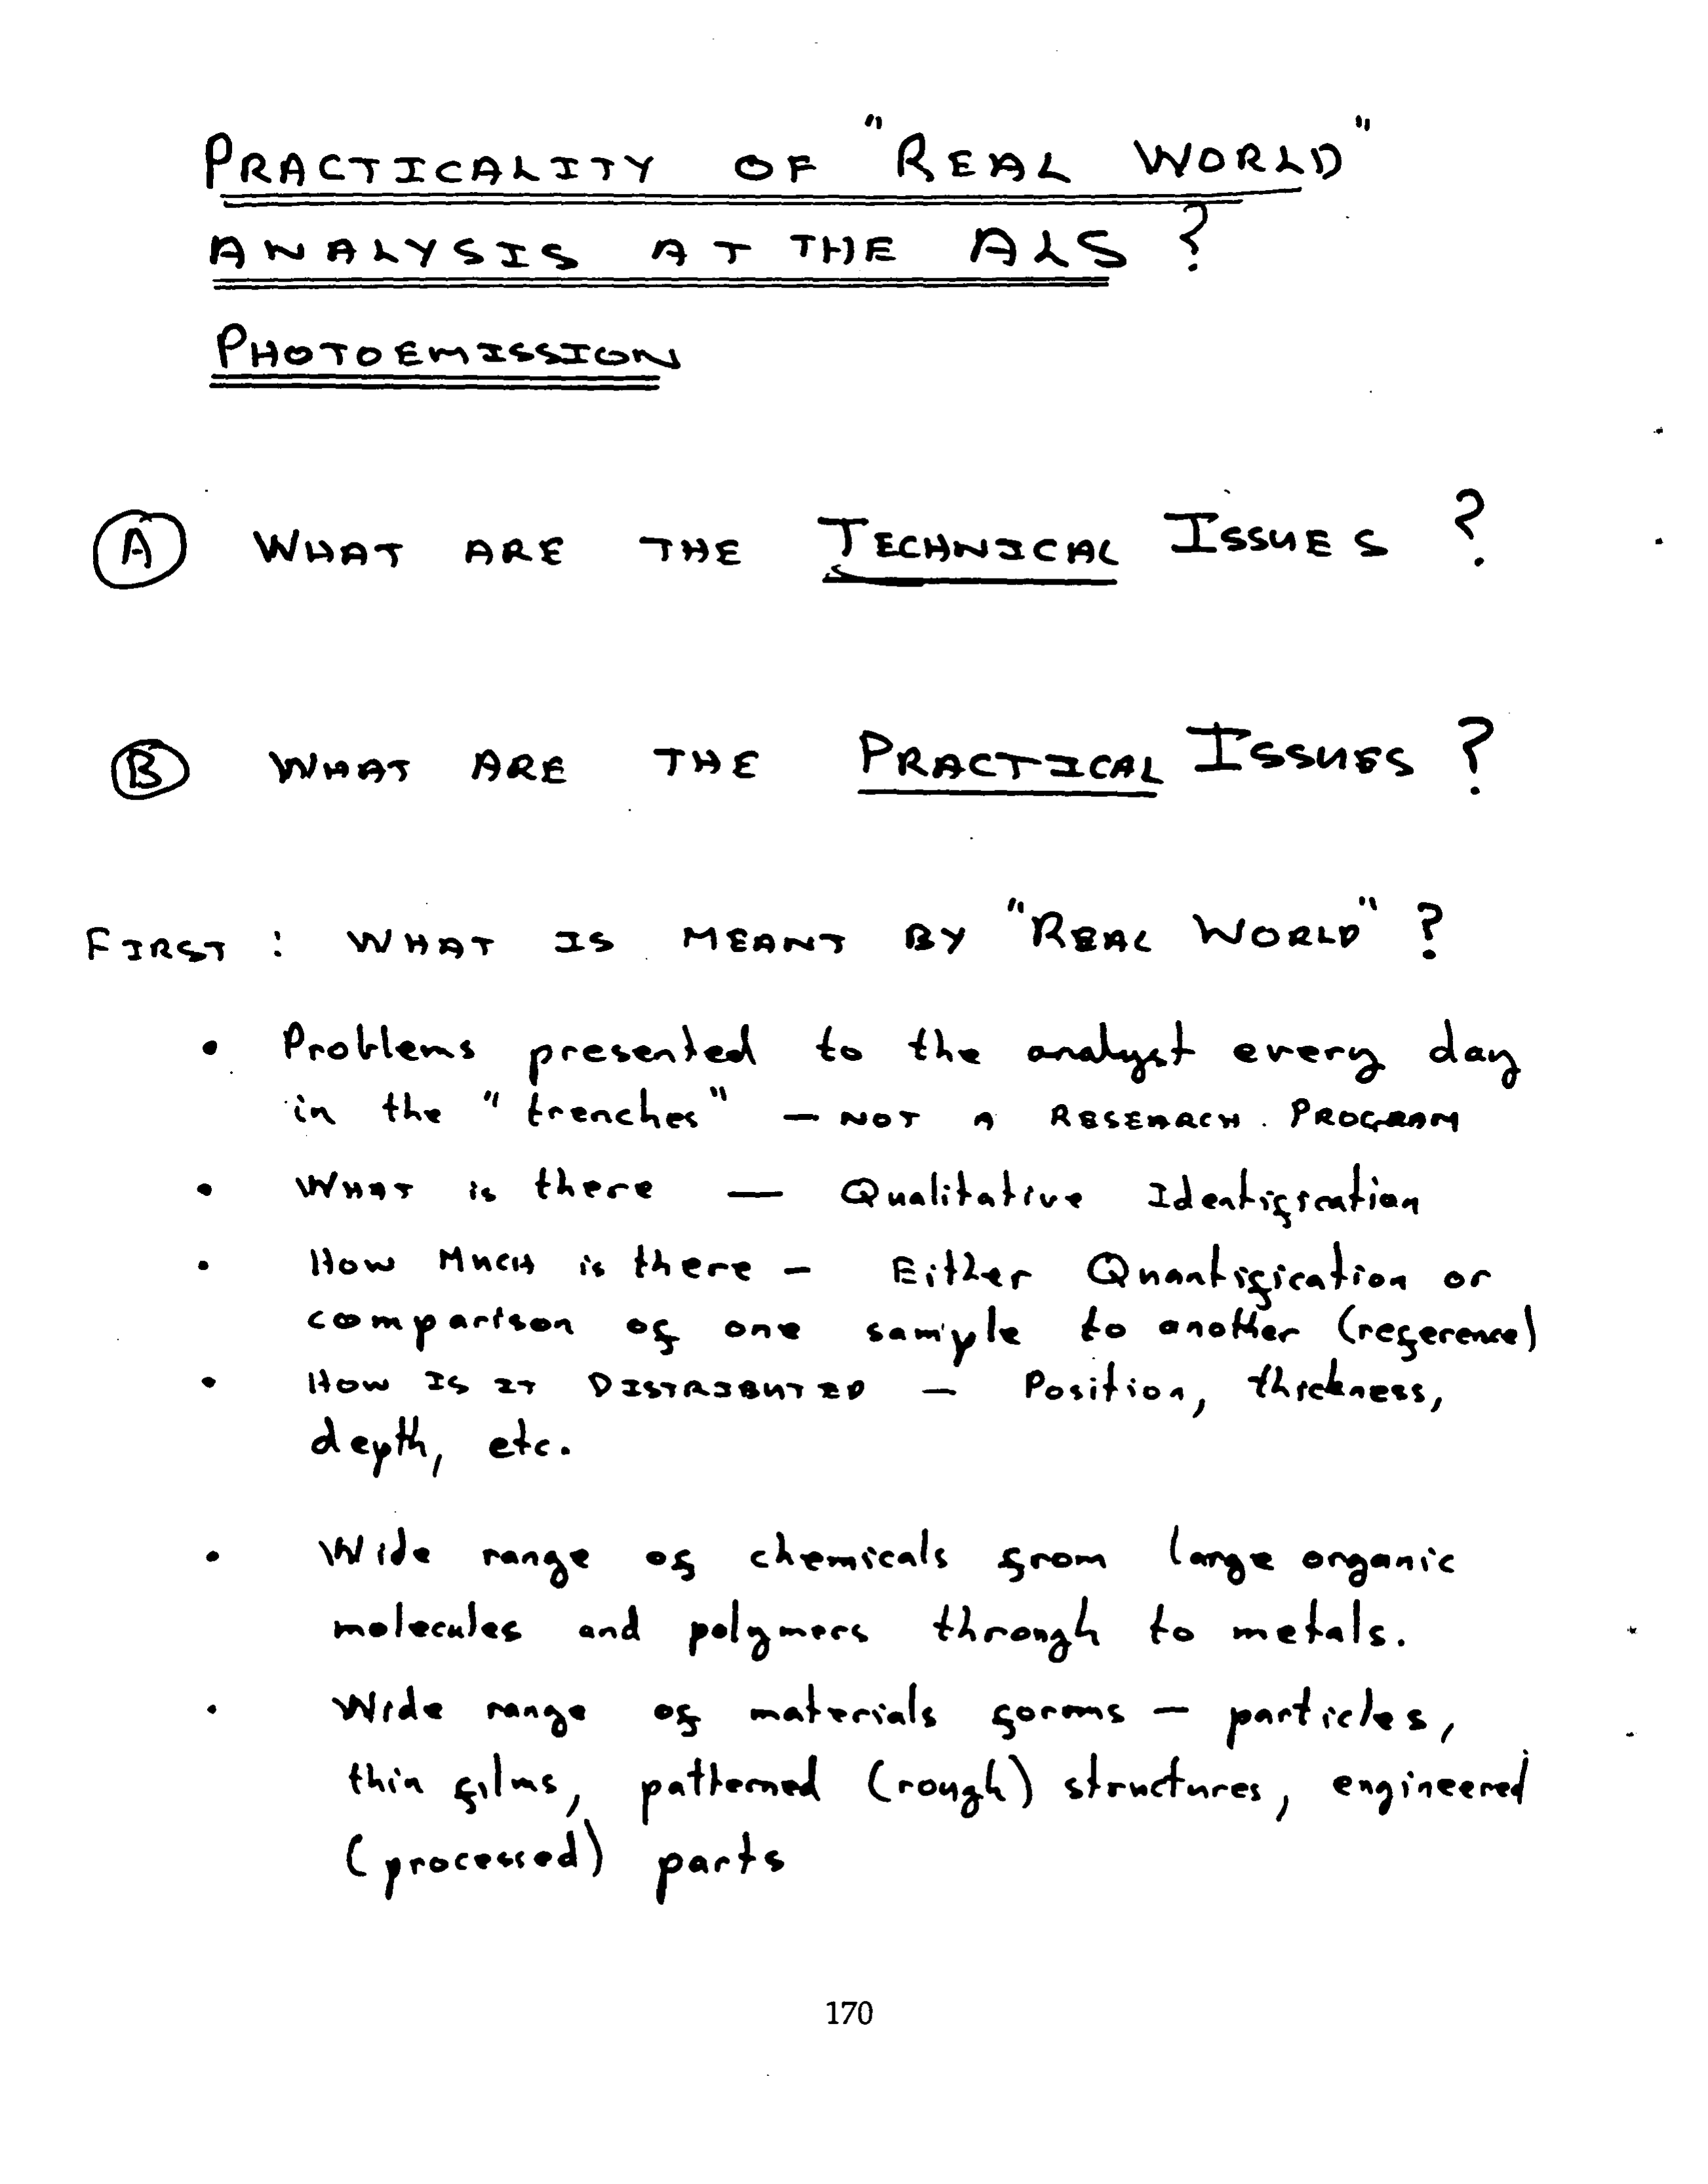 PRACTICALITY OF "REAL WORLD"
ANALYSIS AT THE ALS ?
PHOTOEMISSION
(A) WHAT ARE THE TECHNICAL ISSUES ?
(B) WHAT ARE THE PRACTICAL ISSUES ?
FIRST : WHAT IS MEANT BY "REAL WORLD" ?
• Problems presented to the analyst every day
in the "trenches" — NOT A RESEARCH PROGRAM
• WHAT is there — Qualitative Identification
• How MUCH is there – Either Quantification or
comparison of one sample to another (reference)
• How IS IT DISTRIBUTED — Position, thickness,
depth, etc.
• Wide range of chemicals from large organic
molecules and polymers through to metals.
• Wide range of materials forms — particles,
thin films, patterned (rough) structures, engineered
(processed) parts
170